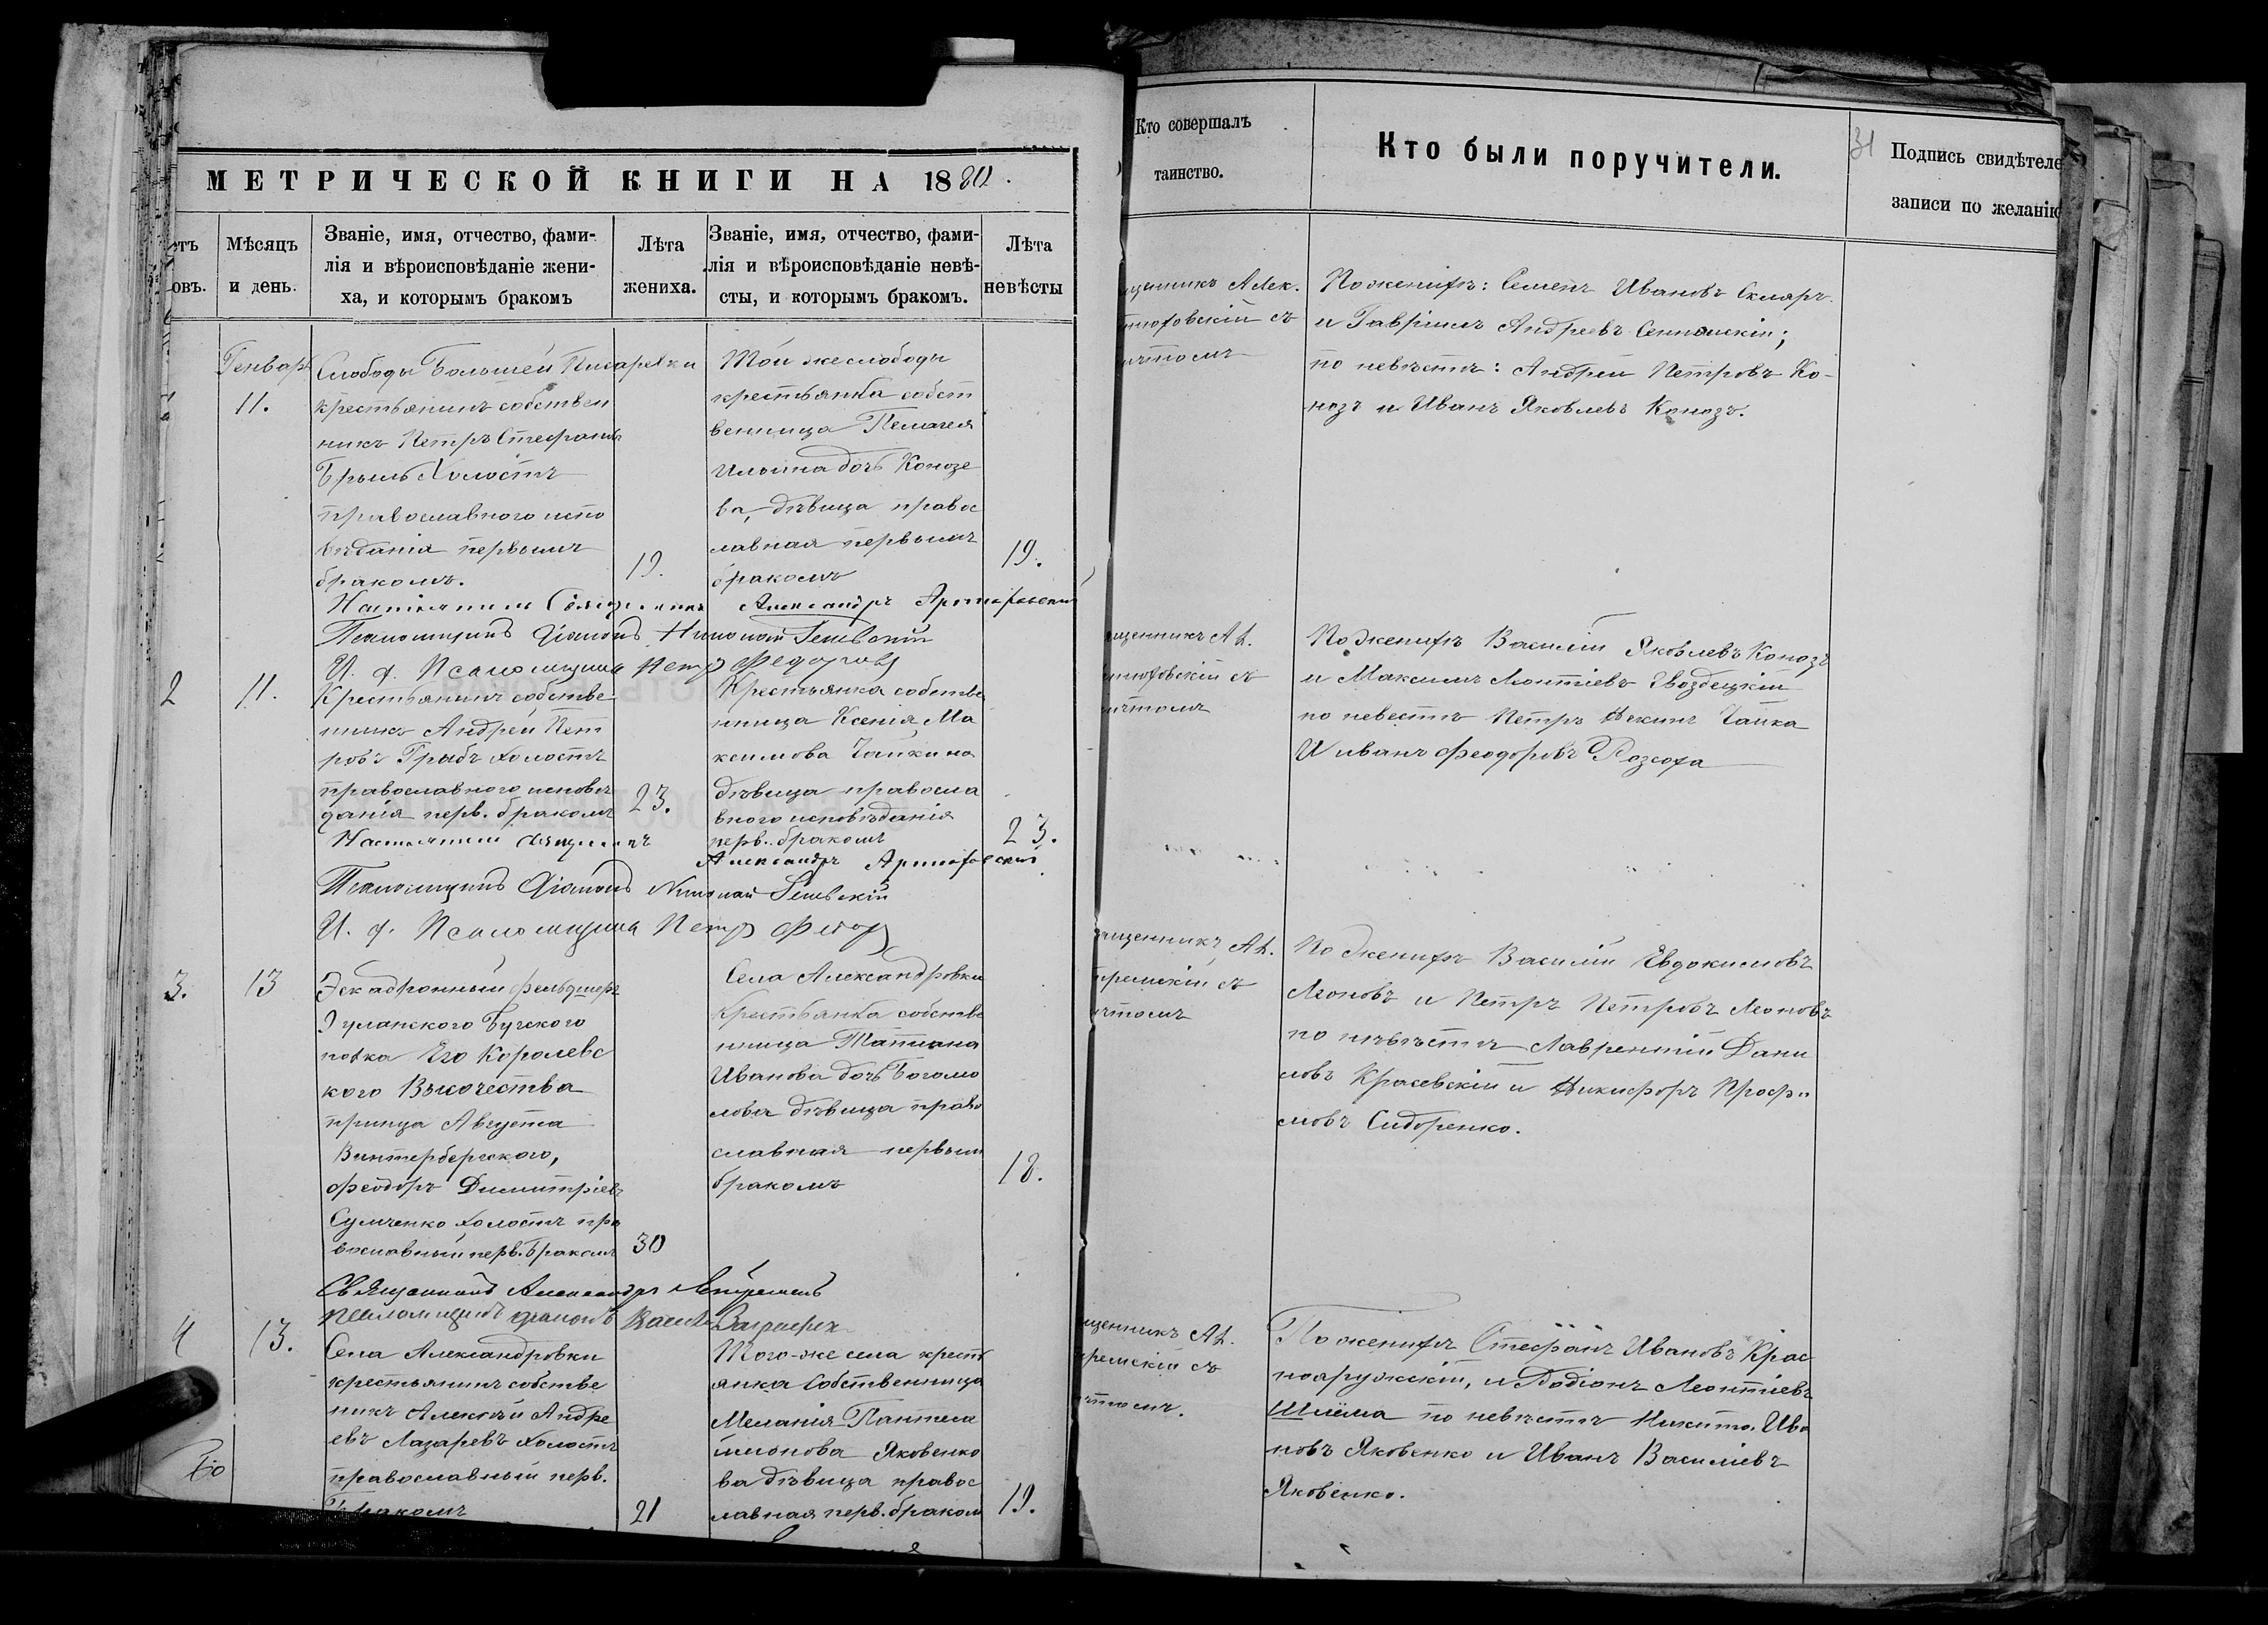 МЕТРИЧЕСКОЙ КНИГИ НА 1880.
Мѣсяцъ
и день.
Званіе, имя, отчество, фами-
лія и вѣроисповѣданіе жени-
ха, и которымъ бракомъ
Лѣта
жениха.
Званіе, имя, отчество, фами-
лія и вѣроисповѣданіе невѣ-
сты, и которымъ бракомъ.
Лѣта
невѣсты
Генварь
11.
Слободы Большей Писаревки
крестьянинъ собствен
никъ Петръ Стефановъ
Брыль Холостъ
православного испо
вѣданія первымъ
бракомъ.
19.
Той же слободы
крестьянка собст
венница Пелагея
Ильина дочь Конозе
ва, дѣвица правос
лавная первымъ
бракомъ
19.
Александръ
Псаломщикъ Діаконъ Николай
И. д. Псаломщика Петръ Федоровъ
2
11.
Крестьянинъ собстве-
нникъ Андрей Пет
ровъ Грыбъ холостъ
православного исповѣ
данія перв. бракомъ
23.
Крестьянка собстве
нница Ксенія Ма
ксимова Чайкина
дѣвица правосла
вного исповѣданія
перв. бракомъ
23.
Александръ
Псаломщикъ Діаконъ Николай
И. д. Псаломщика Петръ
3.
13
Эскадронный фельдшеръ
Уланского Бугского
полка Его Королевс
кого Высочества
принца Августа
Винтербергского,
Феодоръ Димитріевъ
Сумченко холостъ пра
вославный перв. бракомъ
30
Села Александровки
Крестьянка собстве
нница Татиана
Иванова дочь Богомо
лова дѣвица право
славная первымъ
бракомъ
18.
Священникъ Александръ
Псаломщикъ діаконъ
4
13.
Села Александровки
крестьянинъ собстве
никъ Алексѣй Андре
евъ Лазаревъ холостъ
православный перв.
бракомъ
21
Того-же села крест
янка собственница
Меланія Пантеле
имонова Яковенко
ва дѣвица правос
лавная перв. бракомъ
19.
Кто совершалъ
таинство.
Кто были поручители.
31
Подпись свидѣтеле
записи по желанію
щенникъ Алек.
По женихѣ: Семенъ Ивановъ Скляръ
и Гавріилъ Андреевъ
по невѣстѣ: Андрей Петровъ Ко-
нозъ и Иванъ Яковлевъ Конозъ.
щенникъ Ал.
По женихѣ Василій Яковлевъ Конозъ
и Максимъ Леонтіевъ Гвоздецкій
по невестѣ Петръ Чайка
И иванъ Феодоровъ
щенникъ Ал.
По женихѣ Василій Евдокимовъ
Леоновъ и Петръ Петровъ Леоновъ
по нѣвѣстѣ Лаврентій Дани
ловъ Красевскій и Никифоръ
мовъ Сидоренко.
щенникъ Ал.
По женихѣ Стефанъ Ивановъ Крас
нояружскій, и Родіонъ Леонтіевъ
Шлёма по невѣстѣ Никита Ива
новъ Яковенко и Иванъ Василіевъ
Яковенко.